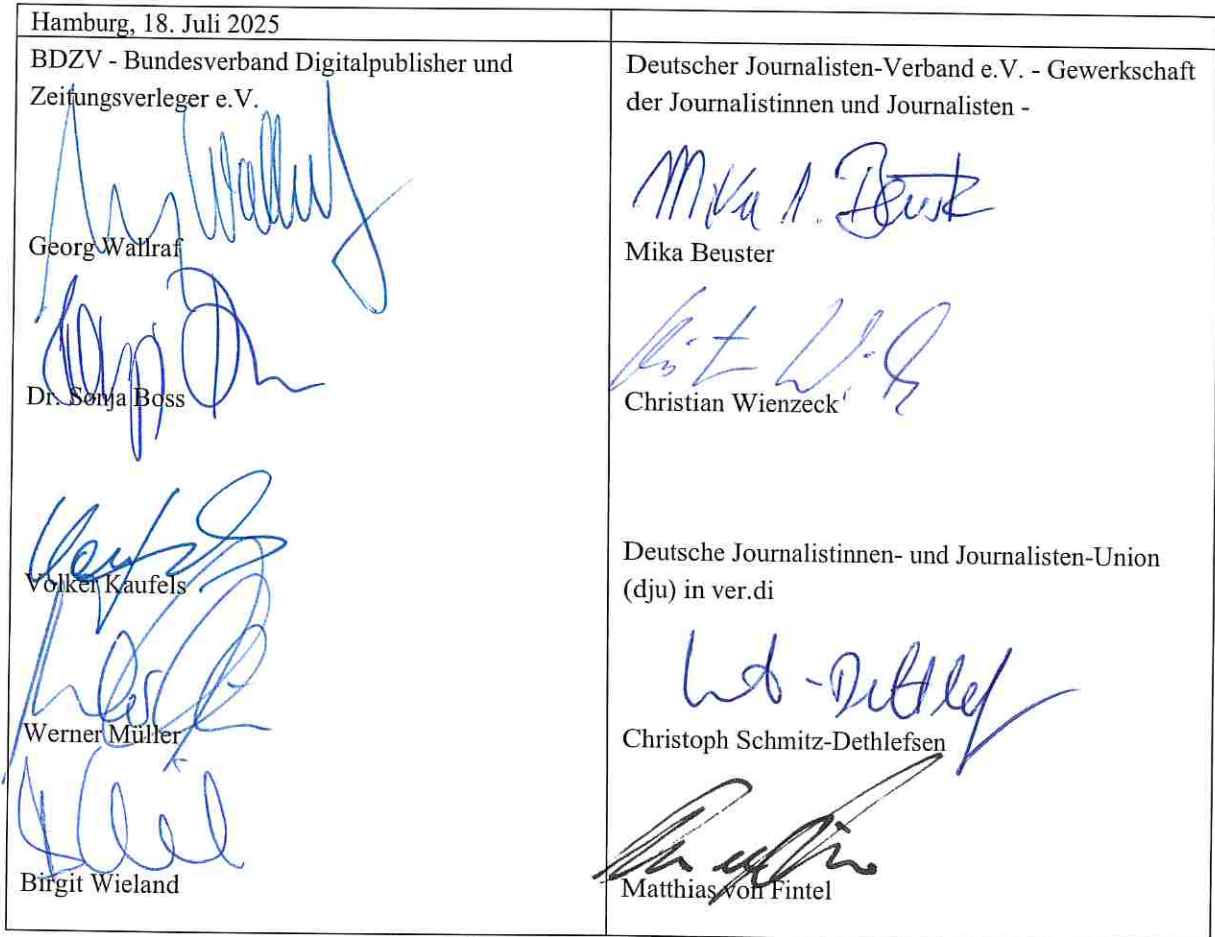 Hamburg, 18. Juli 2025
BDZV - Bundesverband Digitalpublisher und
Zeitungsverleger e.V.
Georg Wallraf
Dr. Sonja Boss
Volker Kaufels
Werner Müller
Birgit Wieland
Deutscher Journalisten-Verband e.V. - Gewerkschaft
der Journalistinnen und Journalisten -
Mika Beuster
Christian Wienzeck
Deutsche Journalistinnen- und Journalisten-Union
(dju) in ver.di
Christoph Schmitz-Dethlefsen
Matthias von Fintel